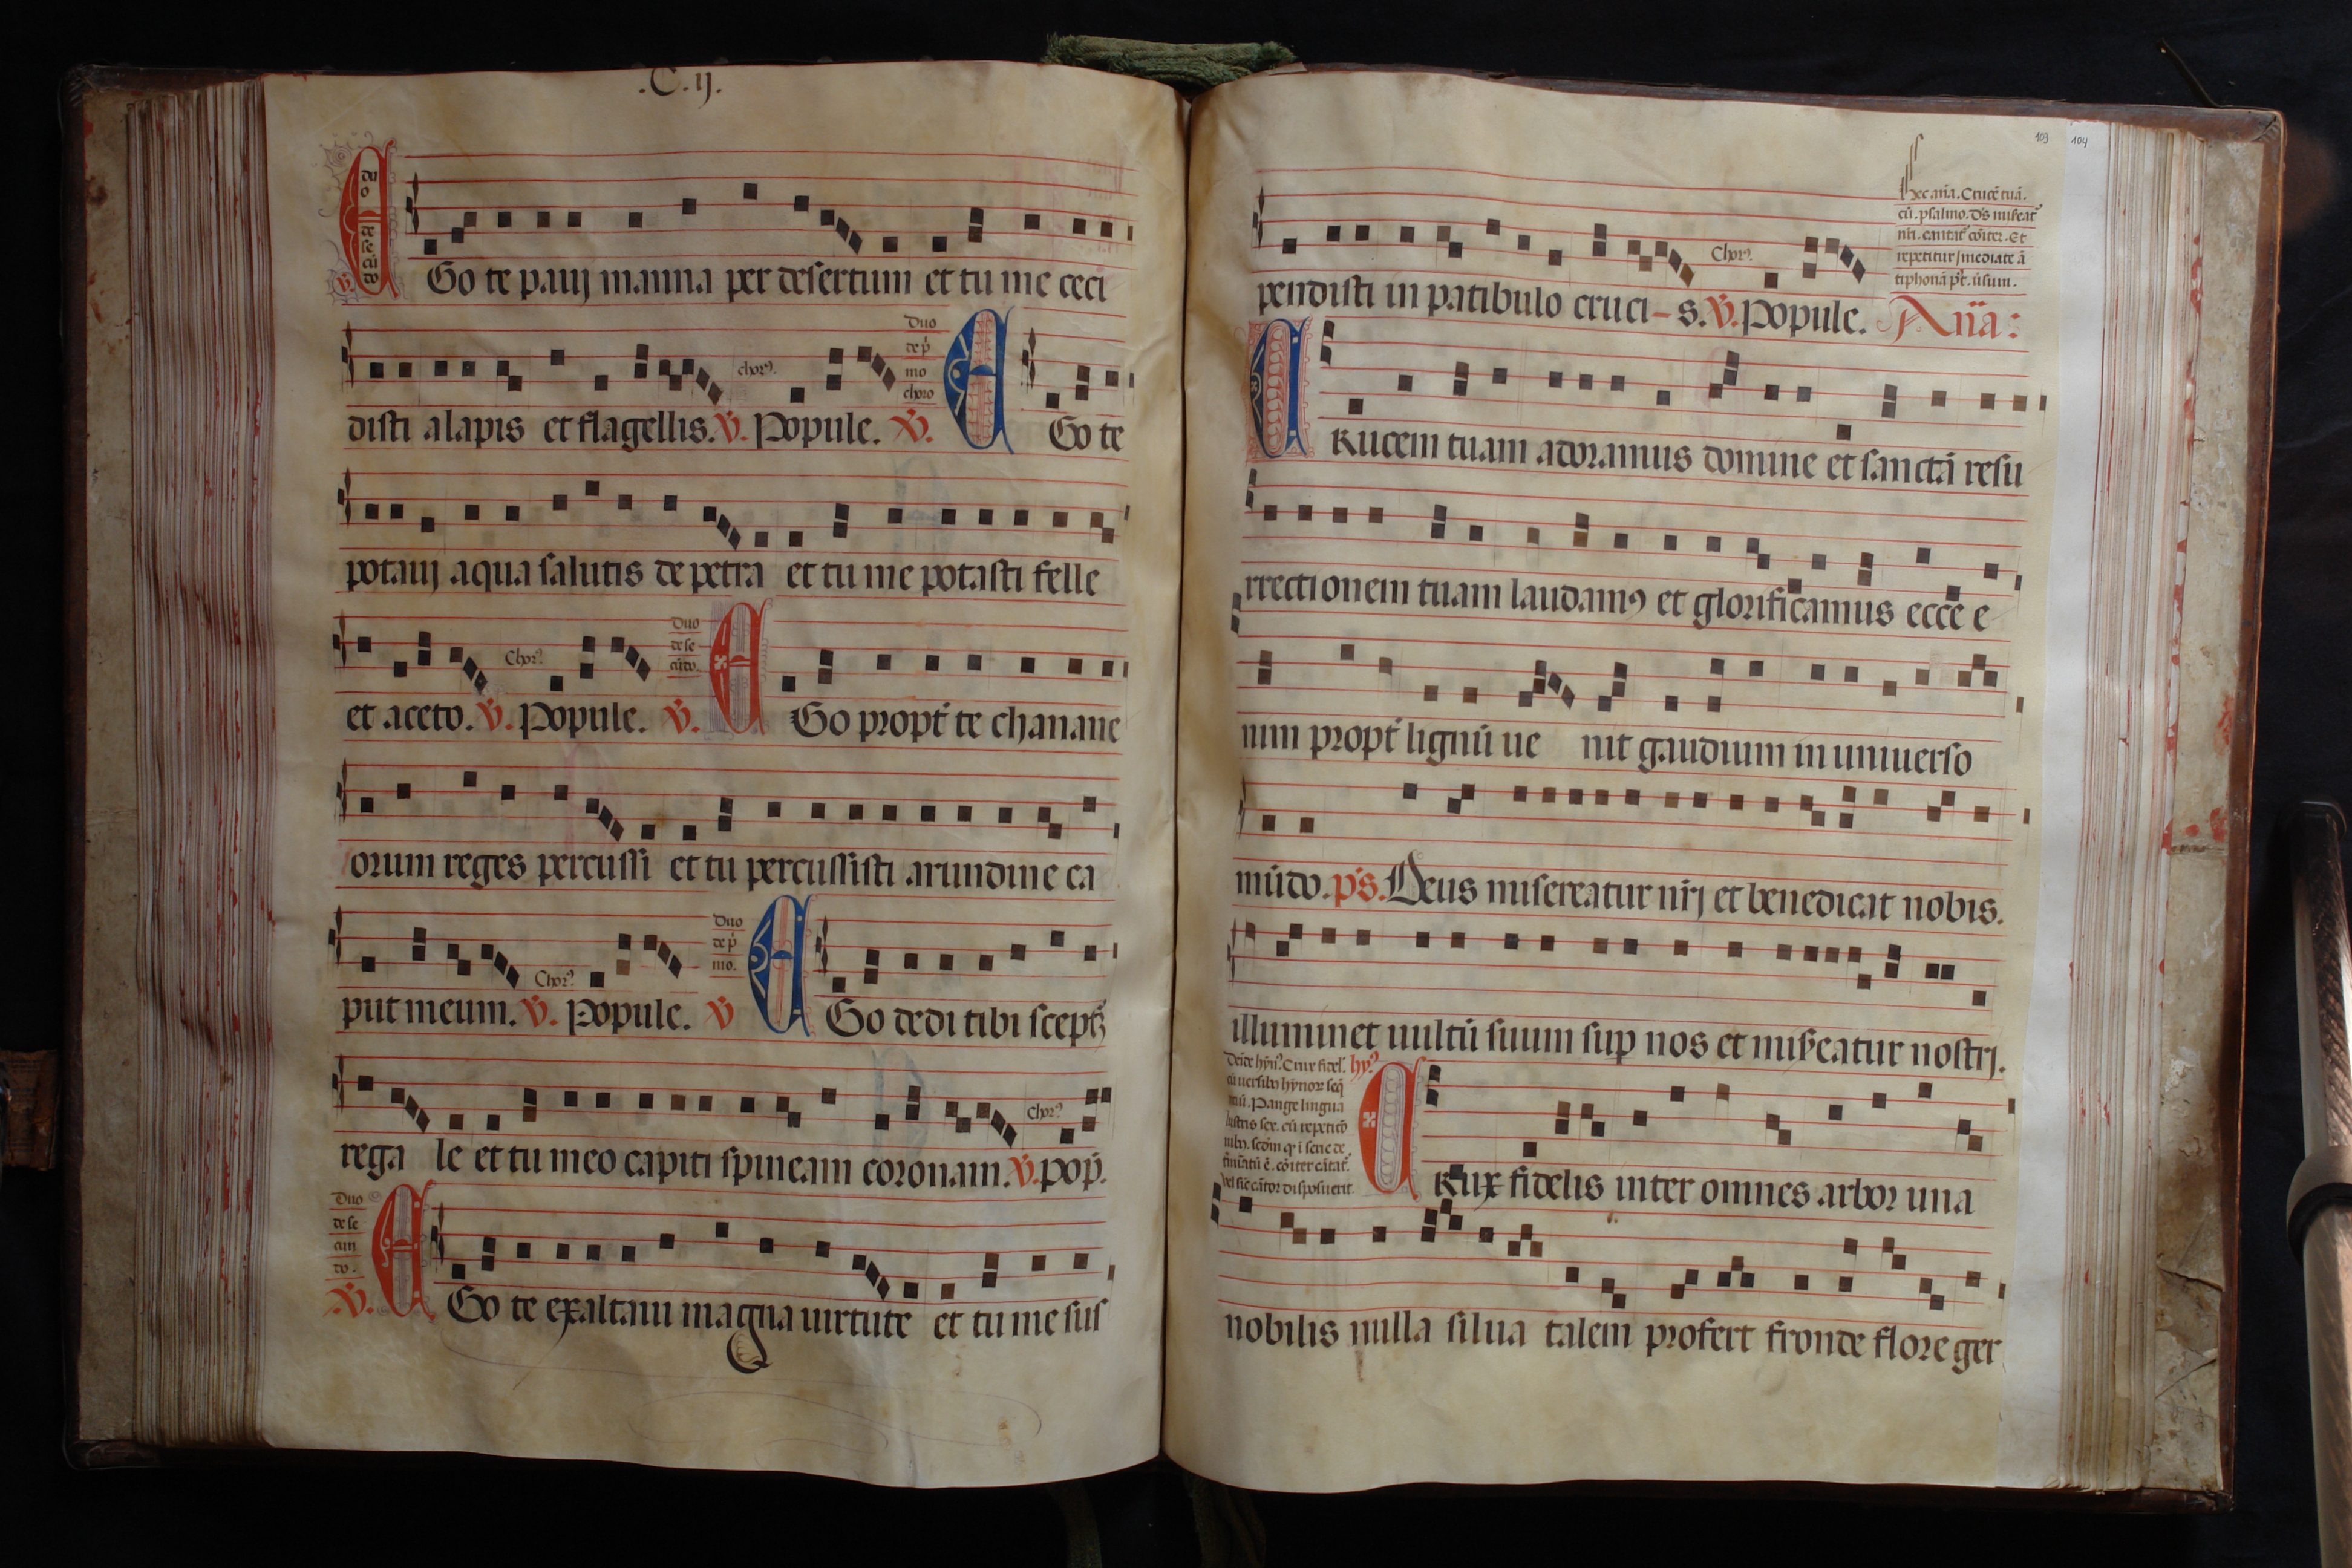 .C.ij.
Go te pauj manna per desertum et tu me ceci
disti alapis et flagellis. V. Popule. V. Go te
chor9.
Duo
de p̄
mo
choro
potauj aqua salutis de petra et tu me potasti felle
et aceto. V. Popule. V. Go propt̄ te chanane
Chor9.
Duo
de se
cūdo.
orum reges percussi et tu percussisti arundine ca
put meum. V. Popule. V Go dedi tibi sceptꝝ
Chor9.
Duo
de p̄
mo.
rega le et tu meo capiti spineam coronam. V. pop̄.
Chor9.
Duo
de se
cun
do.
V. Go te exaltaui magna uirtute et tu me sus
103 104
pendisti in patibulo cruci-s. V. Popule. Aña:
Chor9.
Hec aña. Crucē tuā.
cū. psalmo. Ds miseat̄
nr̄i. cantat̄ cōiter. Et
repetitur īmediate ā
tiphonā pt̄. ūsum.
CRucem tuam adoramus domine et sanctā resu
rrectionem tuam laudam9 et glorificamus ecce e
nim propt̄ lignū ue nit gaudium in uniuerso
mūdo. ps. Deus misereatur nr̄j et benedicat nobis.
illuminet uultū suum sup nos et mis̄eatur nostrj.
Deīde hyn9. Crux fidel̄. hy9
Pange lingua
CRux fidelis inter omnes arbor una
nobilis nulla silua talem profert fronde flore ger